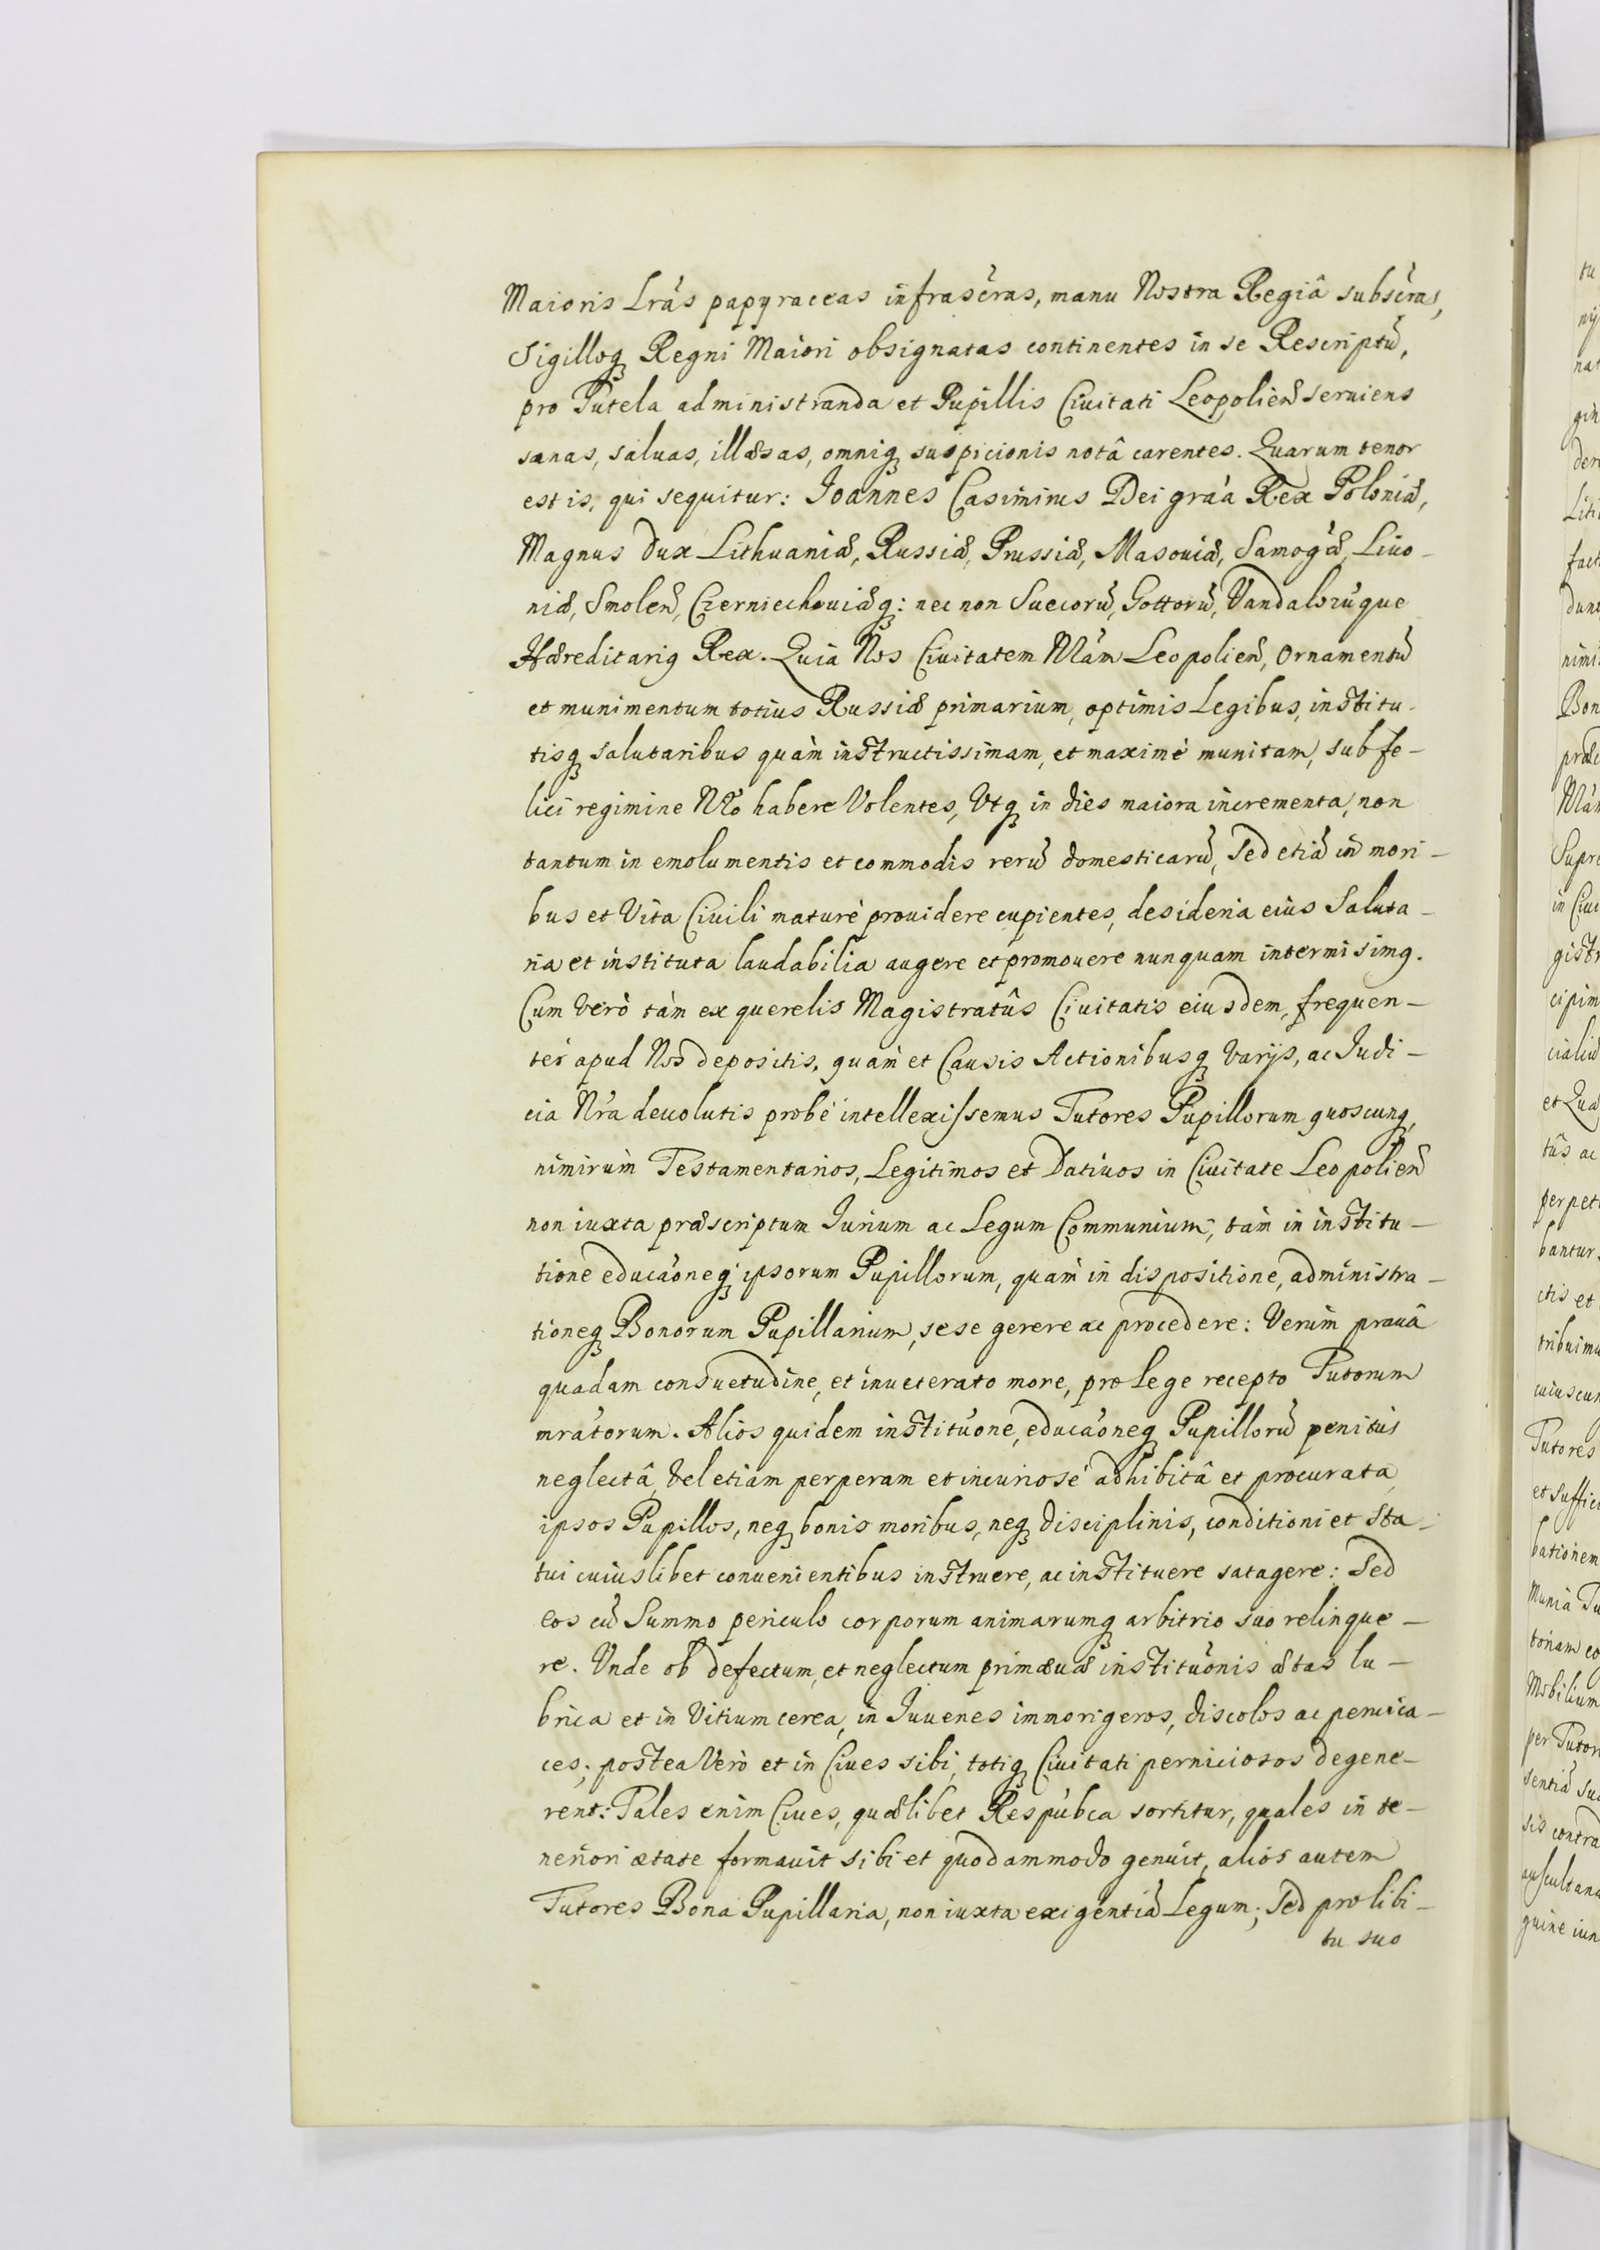 Maioris Lrãs papyraceas infrascẽras, manu Nostra Regiâ subscẽras,
Sigilloq; Regni Maiori obsignatas continentes in se Rescriptũ,
pro Tutela administranda et Pupillis Ciuitati Leopolien̄ seruiens
sanas, saluas, illæsas, omniq; suspicionis notâ carentes. Quarum tenor
est is, qui sequitur: Joannes Casimirus Dei gra͂a Rex Poloniæ,
Magnus Dux Lithuaniæ, Russiæ, Prussiæ, Masouiæ, Samog̃æ, Liuo-
niæ, Smolen̄, Czerniechouiæq;: nec non Suecorũ, Gottorũ, Vandalorũque
Hæreditari9 Rex. Quia Nos Ciuitatem Nr̃am Leopolien̄, Ornamentũ
et munimentum totius Russiæ primarium, optimis Legibus, institu-
tisq; salutaribus quàm instructissimam, et maximè munitam, sub fe-
lici regimine Nr̃o habere Volentes, Vtq; in dies maiora incrementa, non
tantum in emolumentis et commodis rerũ domesticarũ, Sed etiã in mori-
bus et Vita Ciuili maturè prouidere cupientes, desideria eius Saluta-
ria et instituta laudabilia augere et promouere nunquam intermisim9.
Cum Verò tàm ex querelis Magistratûs Ciuitatis eiusdem, frequen-
ter apud Nos depositis, quàm et Causis Actionibusq; Varijs, ac Judi-
cia Nr̃a deuolutis probè intellexissemus Tutores Pupillorum quoscunq;,
nimirùm Testamentarios, Legitimos et Datiuos in Ciuitate Leopolien̄
non iuxta præscriptum Iurium ac Legum Communium, tàm in institu-
tione educãoneq; ipsorum Pupillorum, quàm in dispositione, administra-
tioneq; Bonorum Pupillarium, sese gerere ac procedere: Verùm prauâ
quadam consuetudine, et inueterato more, pro Lege recepto Tutorum
mrãtorum. Alios quidem institũone, educãoneq; Pupillorũ penitùs
neglectâ, Vel etiam perperam et incuriosè adhibitâ et procurata,
ipsos Pupillos, neq; bonis moribus, neq; disciplinis, conditioni et Sta-
tui cuiuslibet conuenientibus instruere, ac instituere satagere: Sed
eos cũ Summo periculo corporum animarumq; arbitrio suo relinque-
re. Vnde ob defectum, et neglectum primæuæ institũonis ætas lu-
brica et in Vitium cerea, in Juuenes immorigeros, discolos ac peruica-
ces; postea Verò et in Ciues sibi, totiq; Ciuitati perniciosos degene-
rent: Tales enim Ciues, quælibet Respũbca sortitur, quales in te-
neriori ætate formauit sibi et quodammodo genuit, alios autem
Tutores Bona Pupillaria, non iuxta exigentiã Legum; Sed pro libi-
tu suo